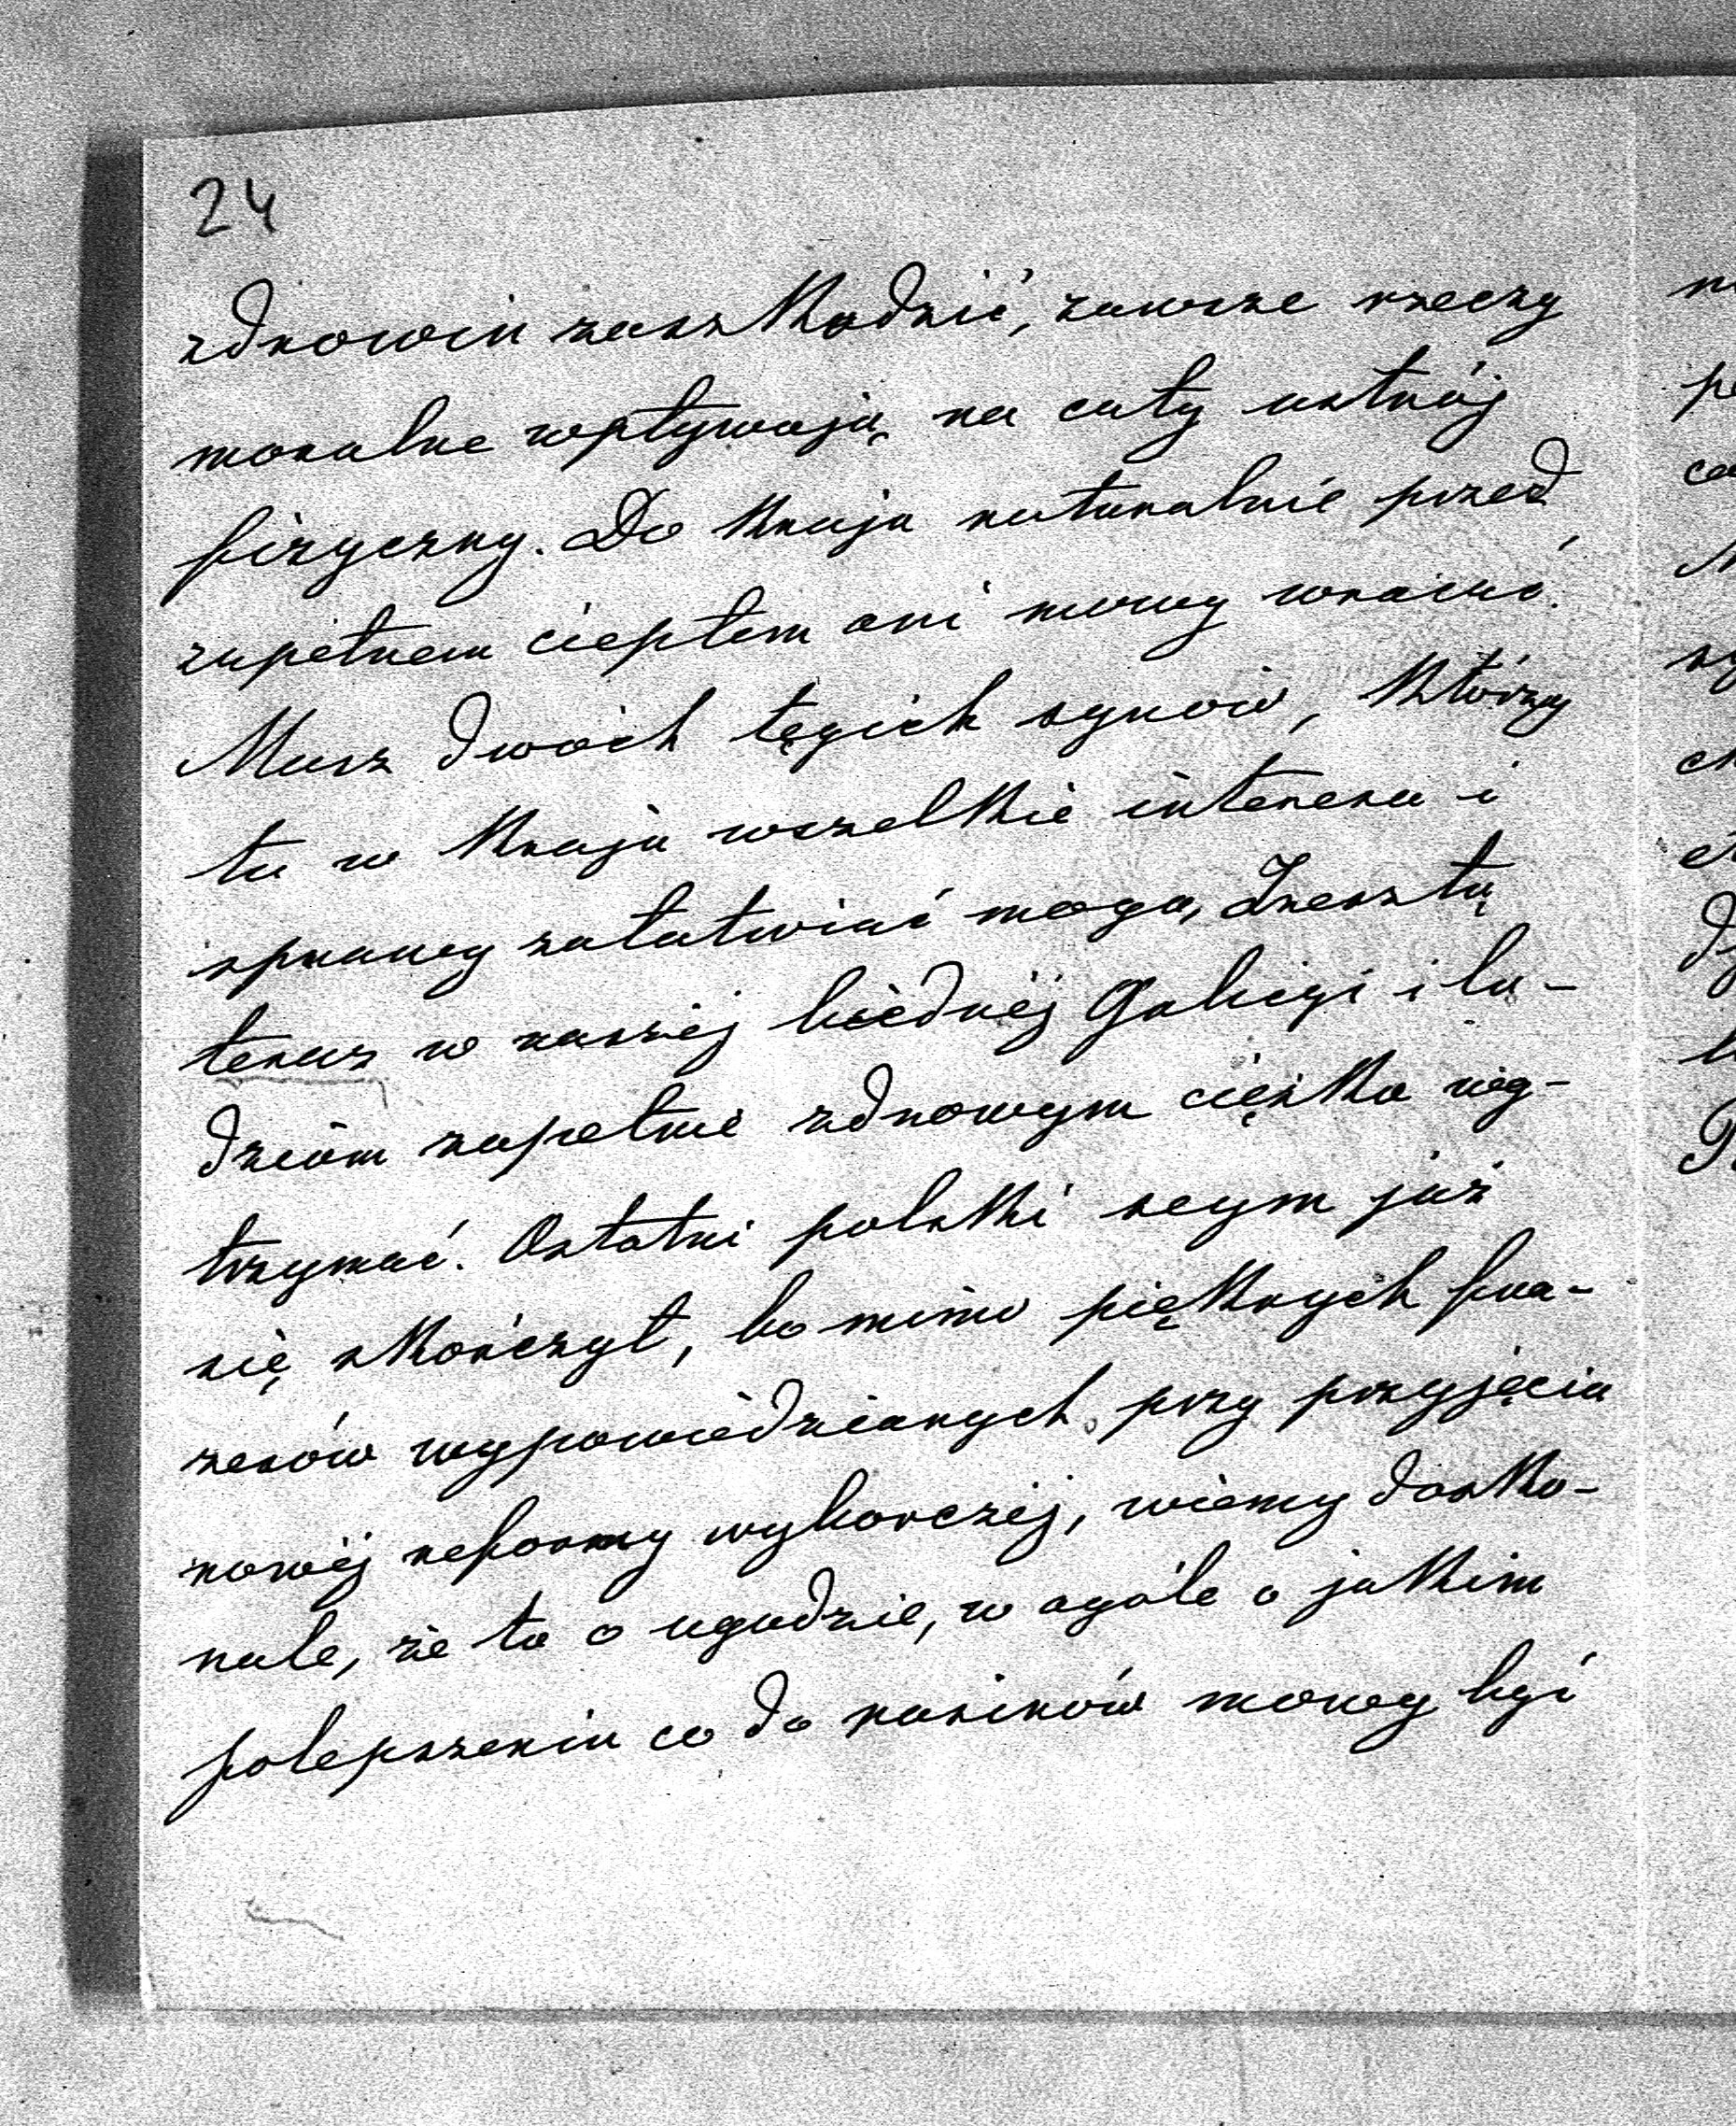 24
zdrowiu zaszkodzić, zawsze rzeczy
moralne wpływają na cały ustrój
fizyczny. Do kraju naturalnie przed
zupełnem ciepłem ani mowy wracać.
Masz dwóch tęgich synów, którzy
tu w kraju wszelkie interesa i
sprawy załatwiać mogą, Zresztą
teraz w naszéj biednéj Galicyi i lu-
dziom zupełnie zdrowym ciężko wy-
trzymać. Ostatni polski seym już
się skończył, bo mimo pięknych fra-
zesów wypowiedzianych przy przyjęciu
nowéj reformy wyborczéj, wiemy dosko-
nale, że to o ugodzie, w ogóle o jakim
polepszeniu co do rusinów mowy być